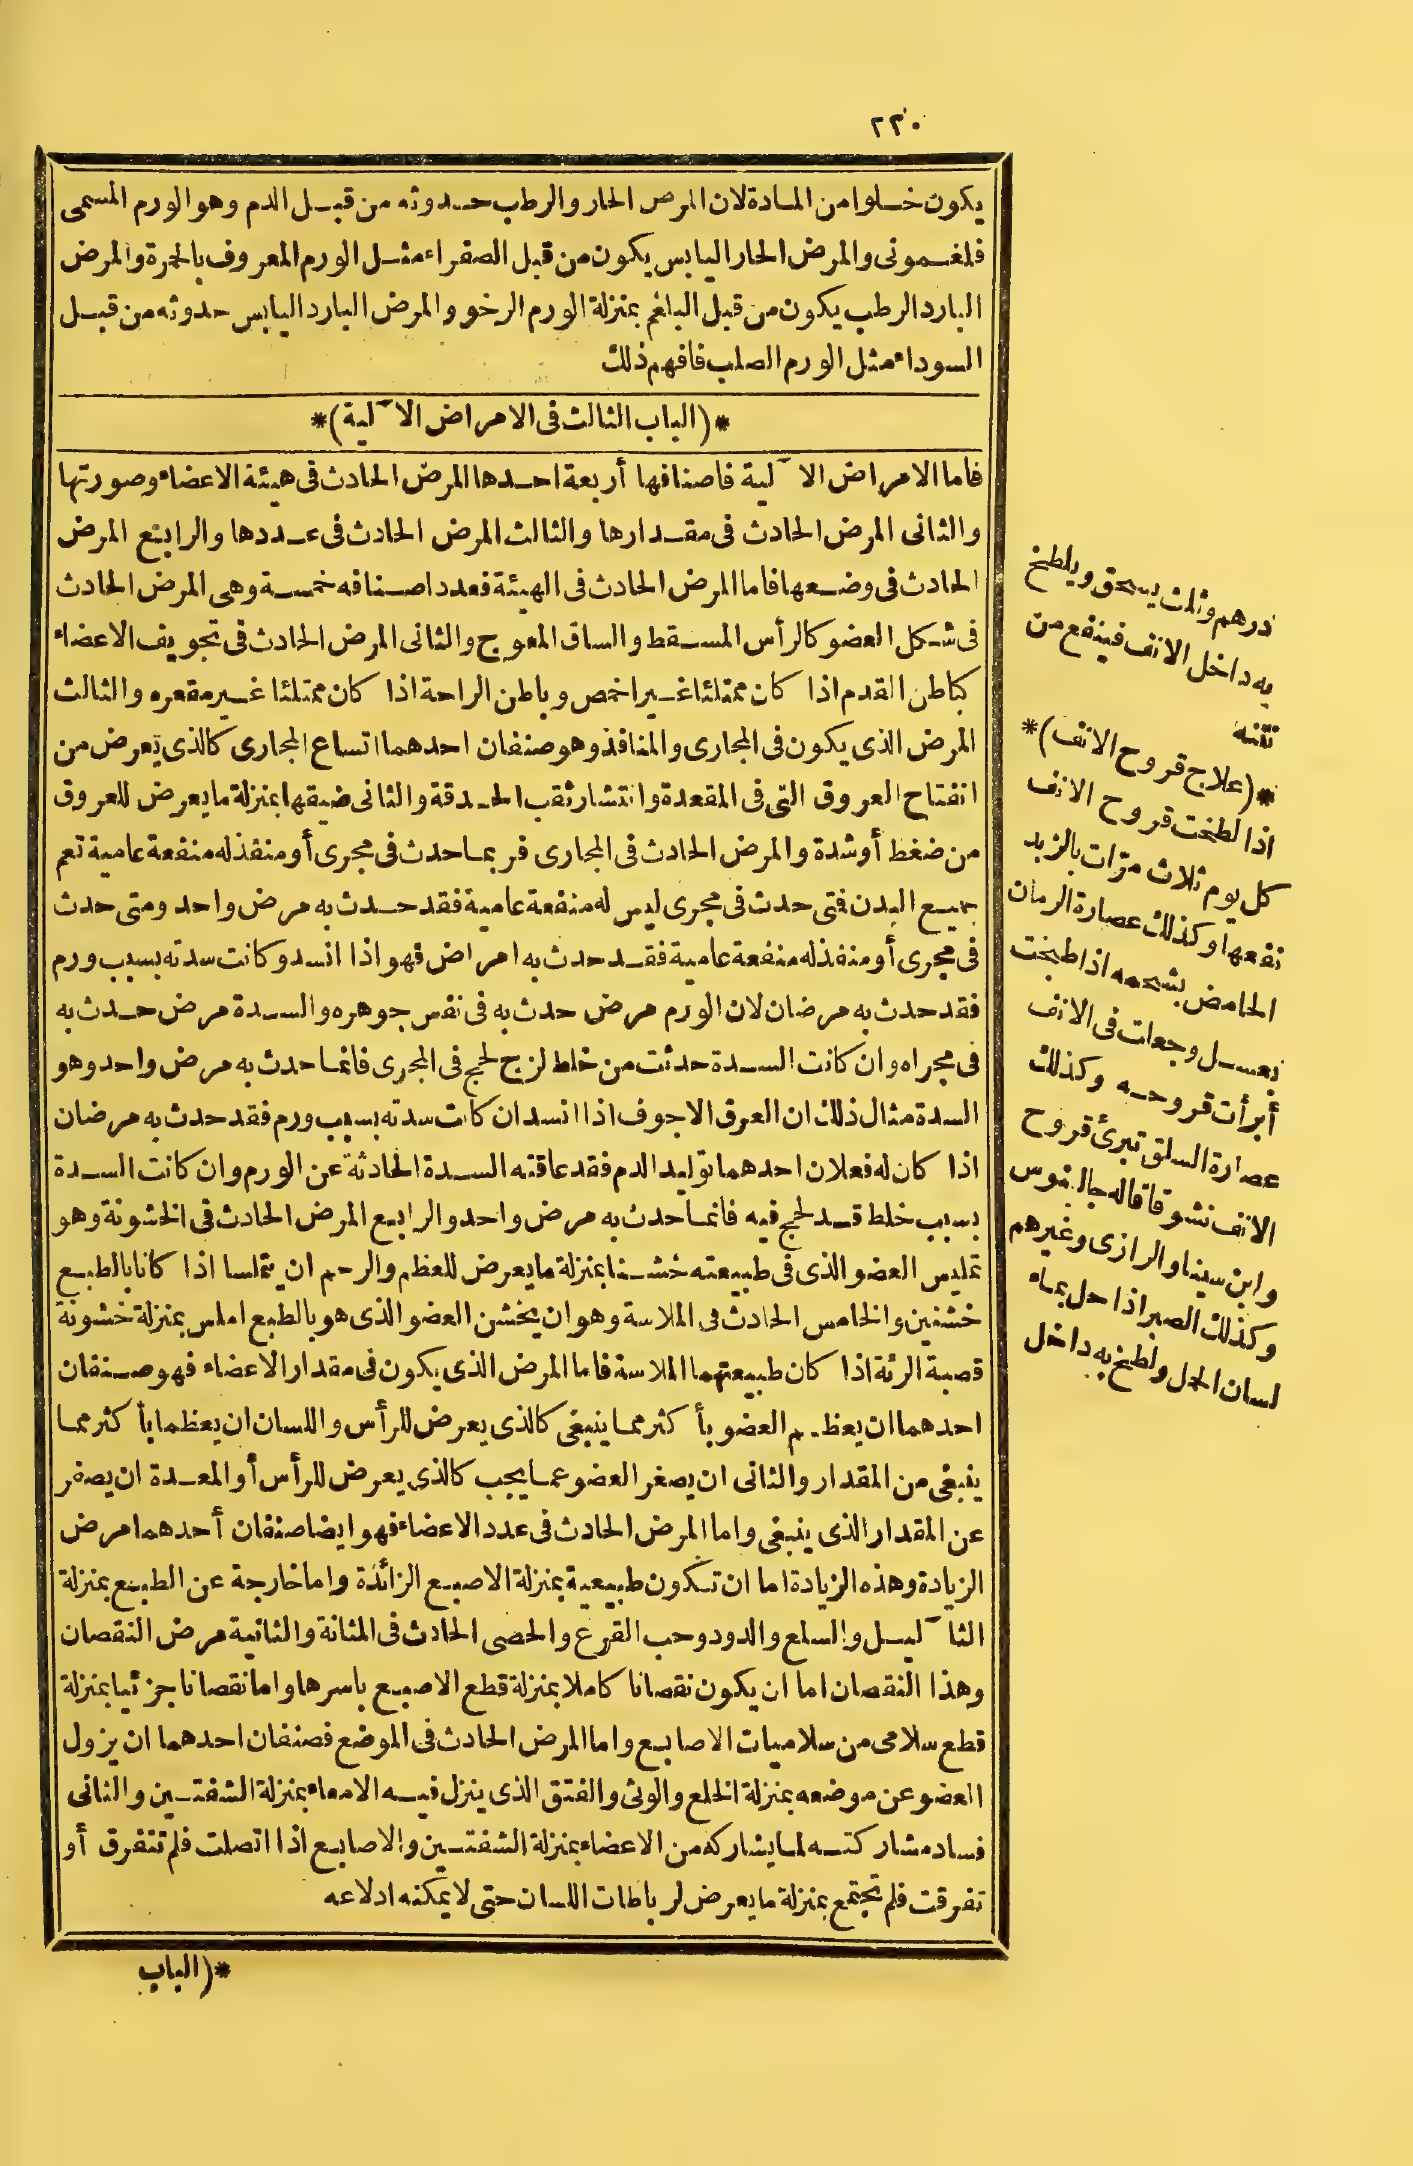 ٢٢٠
يكون خلوا من المادة لان المرض الحار والرطب حدوثه من قبل الدم وهو الورم المسمى
فلغمونى والمرض الحار اليابس يكون من قبل الصفراء مثل الورم المعروف بالحمرة والمرض
البارد الرطب يكون من قبل البلغم بمنزلة الورم الرخو والمرض البارد اليابس حدوثه من قبل
السوداء مثل الورم الصلب فافهم ذلك
*(الباب الثالث فى الامراض الآلية)*
فاما الامراض الآلية فاصنافها أربعة احدها المرض الحادث فى هيئة الاعضاء وصورتها
والثانى المرض الحادث فى مقدارها والثالث المرض الحادث فى عددها والرابع المرض
الحادث فى وضعها فاما المرض الحادث فى الهيئة فعدد اصنافه خمسة وهى المرض الحادث
فى شكل العضو كالرأس المسقط والساق المعوج والثانى المرض الحادث فى تجويف الاعضاء
كباطن القدم اذا كان ممتلئا غير اخمص وباطن الراحة اذا كان ممتلئا غير مقعره والثالث
المرض الذى يكون فى المجارى والمنافذ وهو صنفان احدهما اتساع المجارى كالذى يعرض من
انفتاح العروق التى فى المقعدة وانتشار ثقب الحدقة والثانى ضيقها بمنزلة ما يعرض للعروق
من ضغط أو شدة والمرض الحادث فى المجارى فربما حدث فى مجرى أو منفذ له منفعة عامية تعم
جميع البدن فتى حدث فى مجرى ليس له منفعة عامية فقد حدث به مرض واحد ومتى حدث
فى مجرى أو منفذ له منفعة عامية فقد حدث به امراض فهو اذا انسد وكانت سدته بسبب ورم
فقد حدث به مرضان لان الورم مرض حدث به فى نفس جوهره والسدة مرض حدث به
فى مجراه وان كانت السدة حدثت من خلط لزج لحج فى المجرى فانما حدث به مرض واحد وهو
السدة مثال ذلك ان العرق الاجوف اذا انسد ان كانت سدته بسبب ورم فقد حدث به مرضان
اذا كان له فعلان احدهما توليد الدم فقد عاقته السدة الحادثة عن الورم وان كانت السدة
بسبب خلط قد لحج فيه فانما حدث به مرض واحد والرابع المرض الحادث فى الخشونة وهو
تمليس العضو الذى فى طبيعته خشنا بمنزلة ما يعرض للعظم والرحم ان يتملسا اذا كانا بالطبع
خشنين والخامس الحادث فى الملاسة وهو ان يخشن العضو الذى هو بالطبع املس بمنزلة خشونة
قصبة الرئة اذا كان طبيعتهما الملاسة فاما المرض الذى يكون فى مقدار الاعضاء فهو صنفان
احدهما ان يعظم العضو بأكثر مما ينبغى كالذى يعرض للرأس واللسان ان يعظما بأكثر مما
ينبغى من المقدار والثانى ان يصغر العضو عما يجب كالذى يعرض للرأس أو المعدة ان يصغر
عن المقدار الذى ينبغى واما المرض الحادث فى عدد الاعضاء فهو ايضا صنفان أحدهما مرض
الزيادة وهذه الزيادة اما ان تكون طبيعية بمنزلة الاصبع الزائدة واما خارجة عن الطبع بمنزلة
الثآليل والسلع والدود وحب القرع والحصى الحادث فى المثانة والثانية مرض النقصان
وهذا النقصان اما ان يكون نقصانا كاملا بمنزلة قطع الاصبع باسرها واما نقصانا جزئيا بمنزلة
قطع سلامى من سلاميات الاصابع واما المرض الحادث فى الموضع فصنفان احدهما ان يزول
العضو عن موضعه بمنزلة الخلع والوثى والفتق الذى ينزل فيه الامعاء بمنزلة الشفتين والثانى
فساد مشاركته لما يشاركه من الاعضاء بمنزلة الشفتين والاصابع اذا اتصلت فلم تتفرق أو
تفرقت فلم تجتمع بمنزلة ما يعرض لرباطات اللسان حتى لا يمكنه ادلاعه
*(الباب
درهم وثلث يسحق ويلطخ
به داخل الانف فينفع من
نتنه
*(علاج قروح الانف)*
اذا لطخت قروح الانف
كل يوم ثلاث مرّات بالزبد
نفعها وكذلك عصارة الرمان
الحامض بشحمه اذا طبخت
بعسل وجعلت فى الانف
أبرأت قروحه وكذلك
عصارة السلق تبرئ قروح
الانف نشوقا قاله جالينوس
وابن سينا والرازى وغيرهم
وكذلك الصبر اذا حل بماء
لسان الحمل ولطخ به داخل